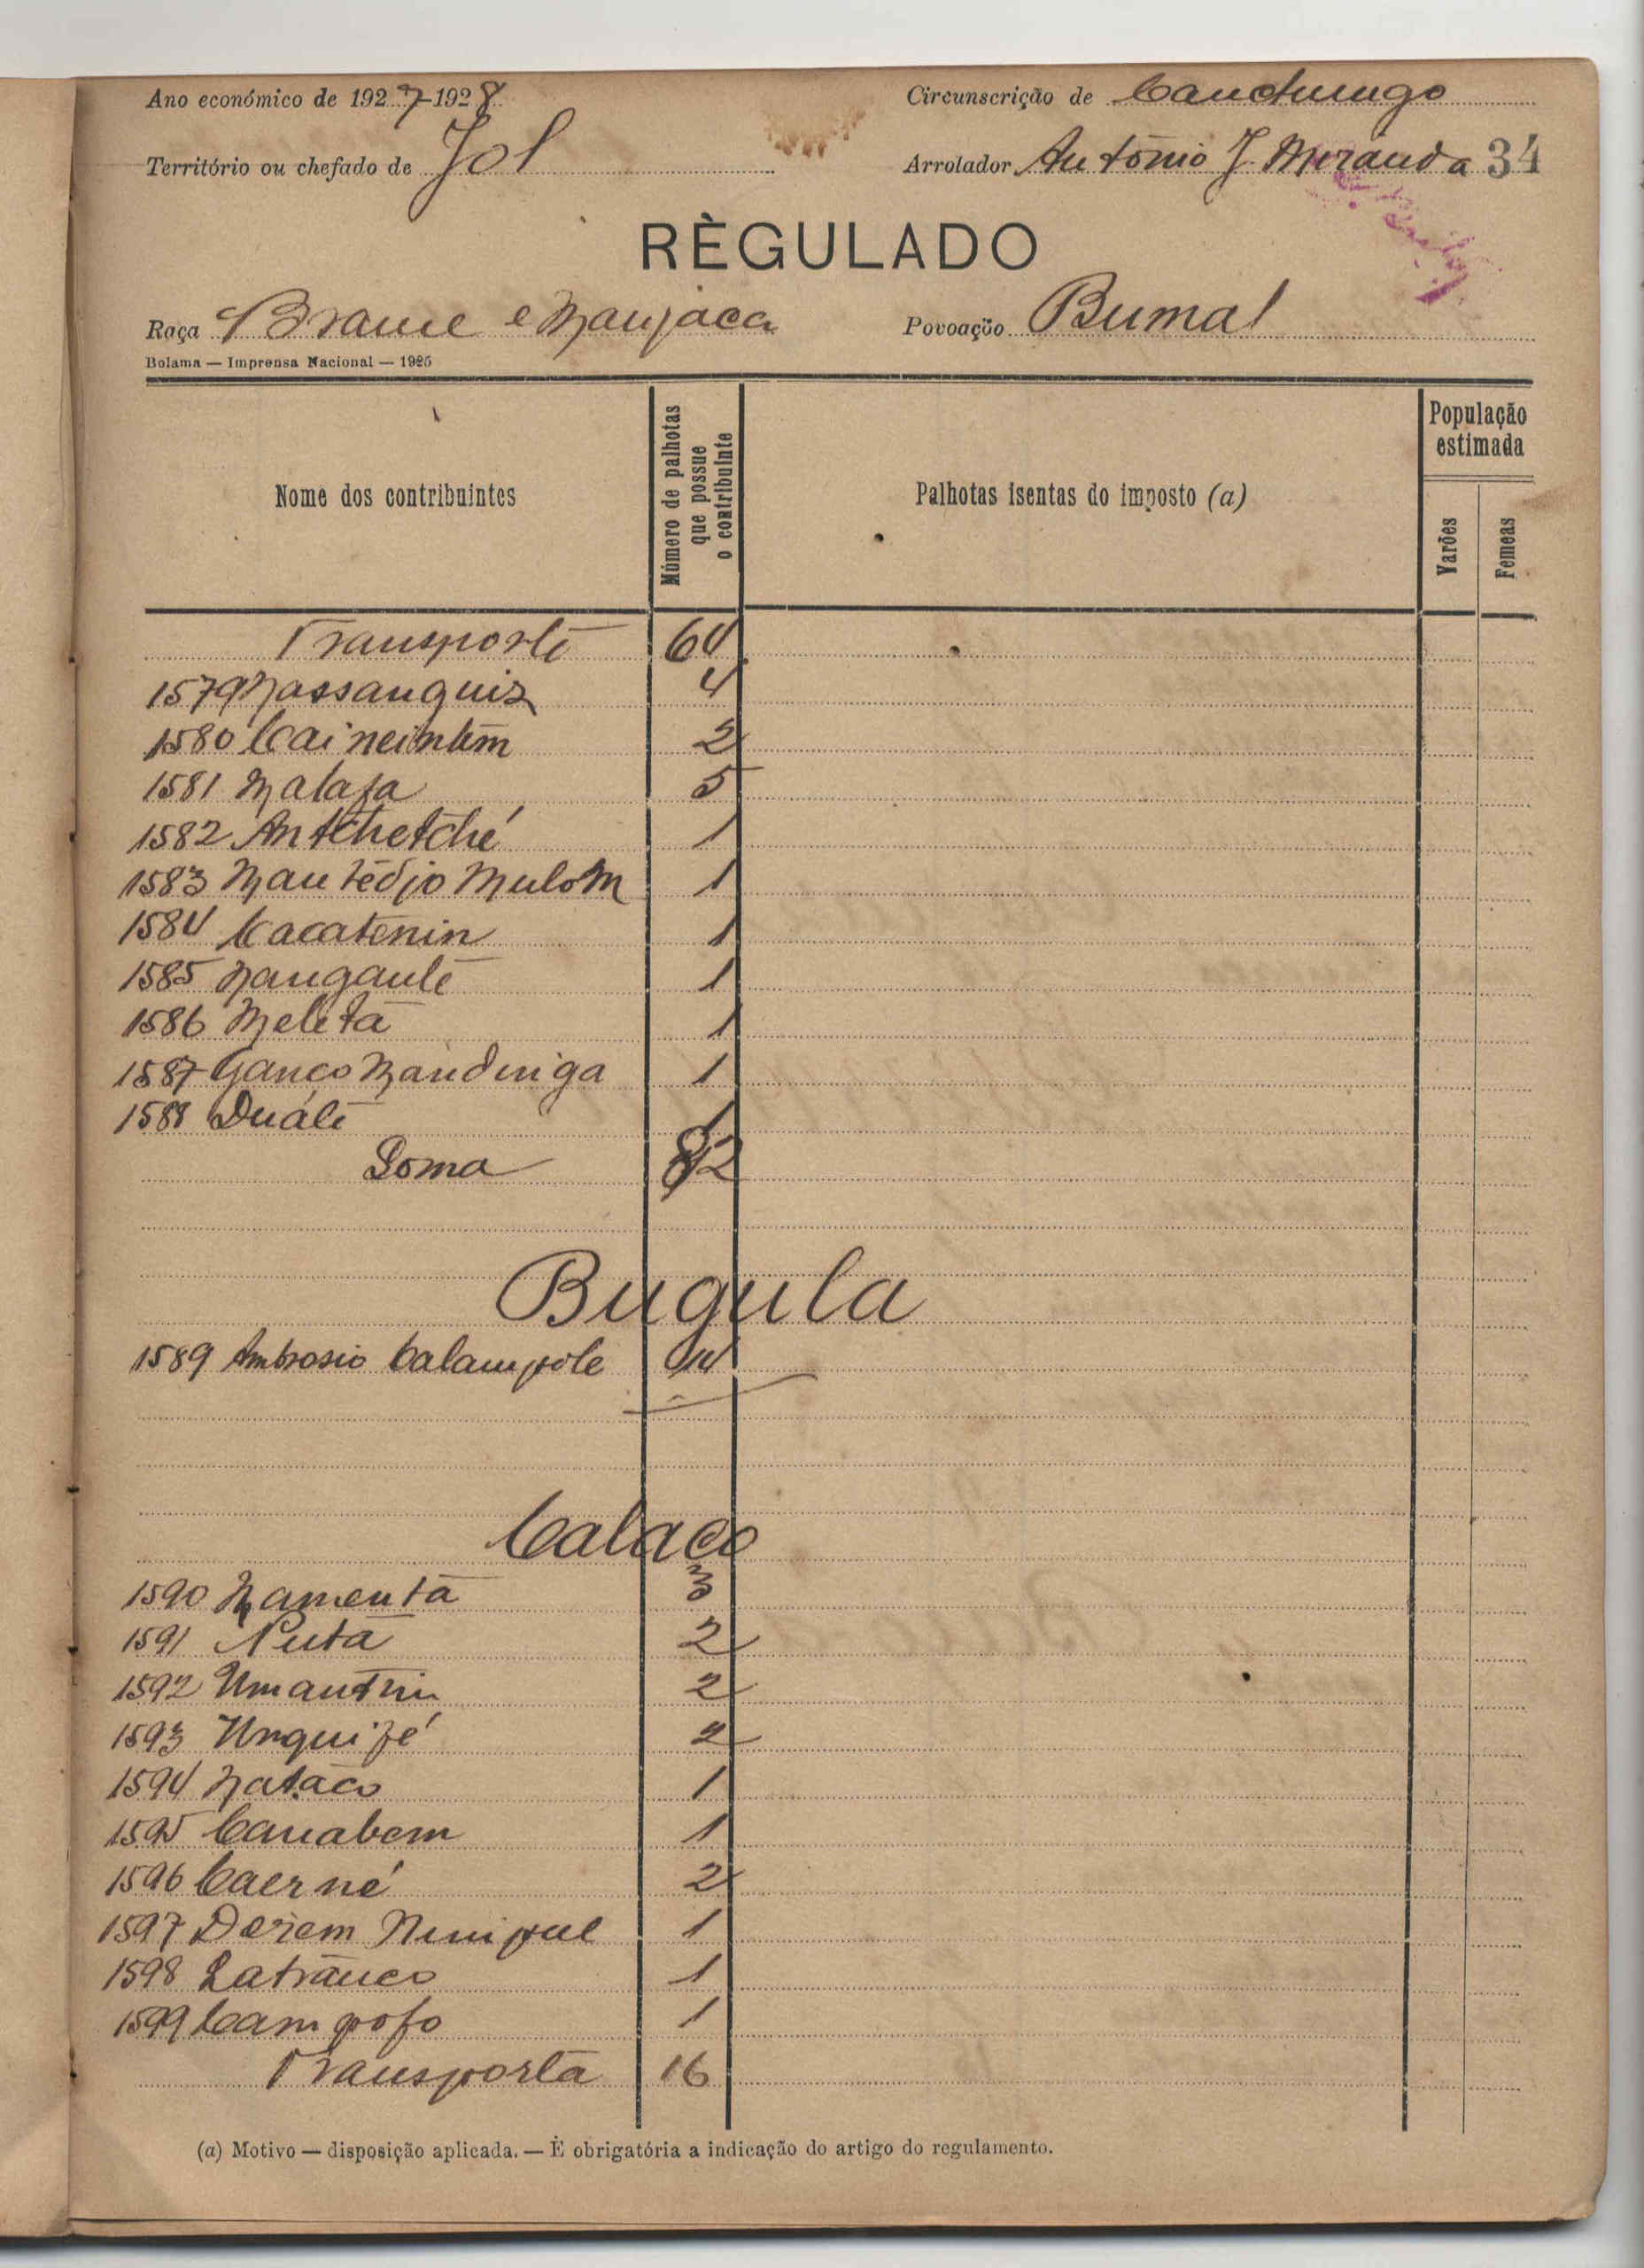 Ano económico de 1927-1928
Circunscrição de Canchungo
Território ou chefado de Jol
Arrolador António J. Miranda 34
RÈGULADO
Raça Brame e Manjaca
Povoação Bumal
Bolama — Imprensa Nacional — 1925
Nome dos contribuintes
Número de palhotas que possue o contribuinte
Palhotas isentas do imposto (a)
População estimada
Varões
Femeas
Transporte 64
1579 Nassanguis 4
1580 Caineintem 2
1581 Malafa 5
1582 Antchetché 1
1583 Mantédjo Mulom 1
1584 Cacatenin 1
1585 Nangante 1
1586 Meleta 1
1587 Ganço Mandinga 1
1588 Duále 1
Soma 82
Bugula
1589 Ambrosio Calampole 14
Calaco
1590 Namenta 3
1591 Nuta 2
1592 Umantrin 2
1593 Unquifé 2
1594 Nataco 1
1595 Canabem 1
1596 Caerné 2
1597 Derem 1
1598 Latranco 1
1599 Campofo 1
Transporta 16
(a) Motivo — disposição aplicada. — É obrigatória a indicação do artigo do regulamento.